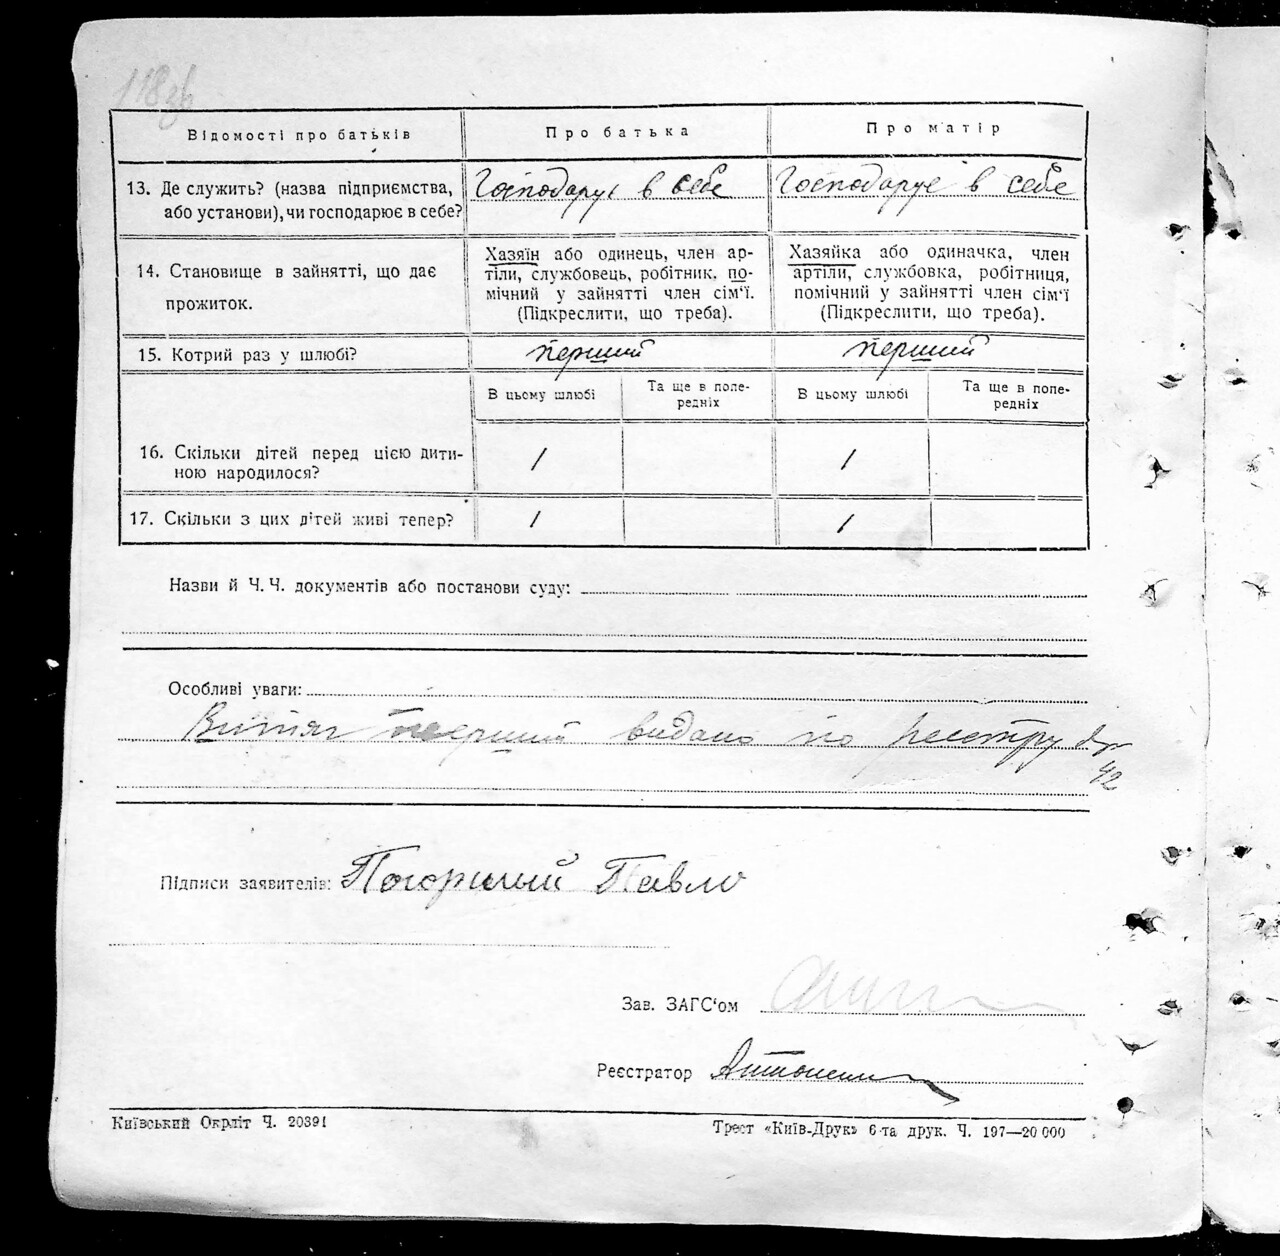 118зв
Відомості про батьків
Про батька
Про матір
13. Де служить? (назва підприємства,
або установи), чи господарює в себе?
Господарує в себе
Господарує в себе
14. Становище в зайнятті, що дає
прожиток.
Хазяїн або одинець, член ар-
тіли, службовець, робітник. по-
мічний у зайнятті член сім'ї.
(Підкреслити, що треба).
Хазяйка або одиначка, член
артіли, службовка, робітниця,
помічний у зайнятті член сім'ї
(Підкреслити, що треба).
15. Котрий раз у шлюбі?
перший
перший
В цьому шлюбі
Та ще в попе-
редніх
В цьому шлюбі
Та ще в попе-
редніх
16. Скільки дітей перед цією дити-
ною народилося?
1
1
17. Скільки з цих дітей живі тепер?
1
1
Назви й Ч. Ч. документів або постанови суду:
Особливі уваги:
Витяг перший видано по реєстру
42
Підписи заявителів:
Павло
Зав. ЗАГС'ом
Реєстратор
Київський Окрліт Ч. 20391
Трест «Київ-Друк» 6-та друк. Ч. 197—20 000